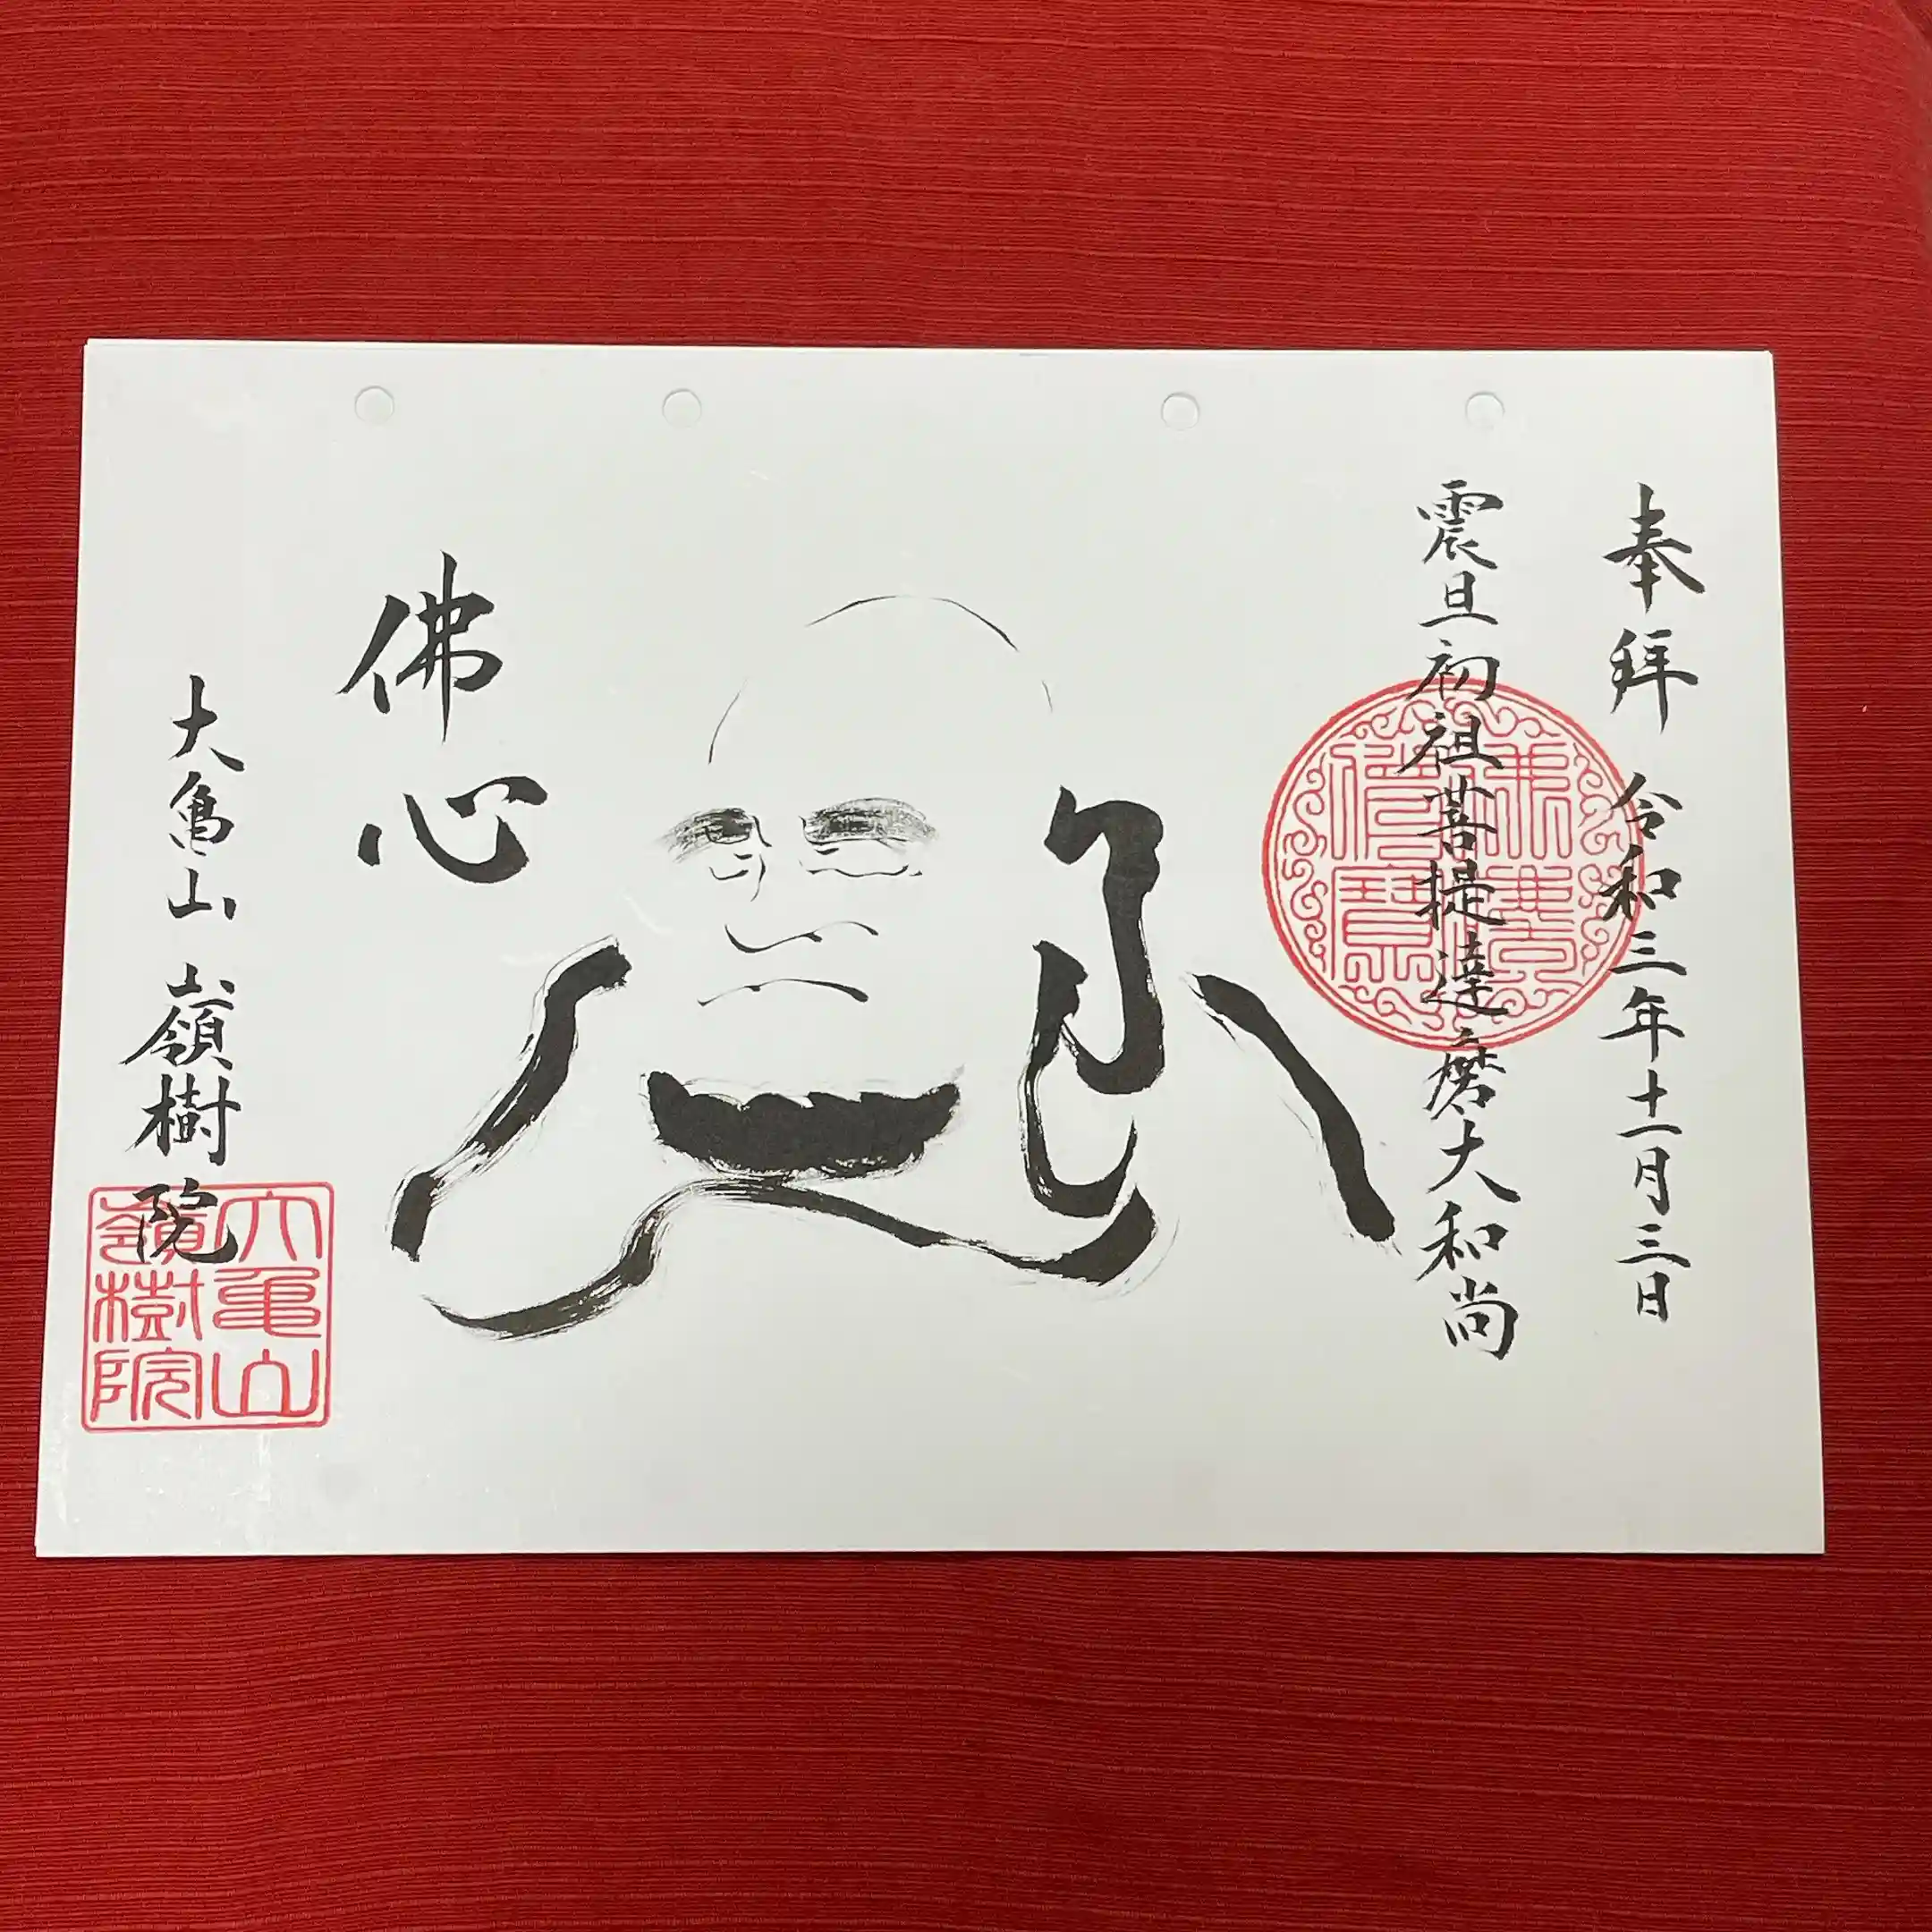 奉拜 令和三年十一月三日
震旦初祖菩提達磨大和尚
佛心
大亀山 嶺樹院
大亀山
嶺樹院